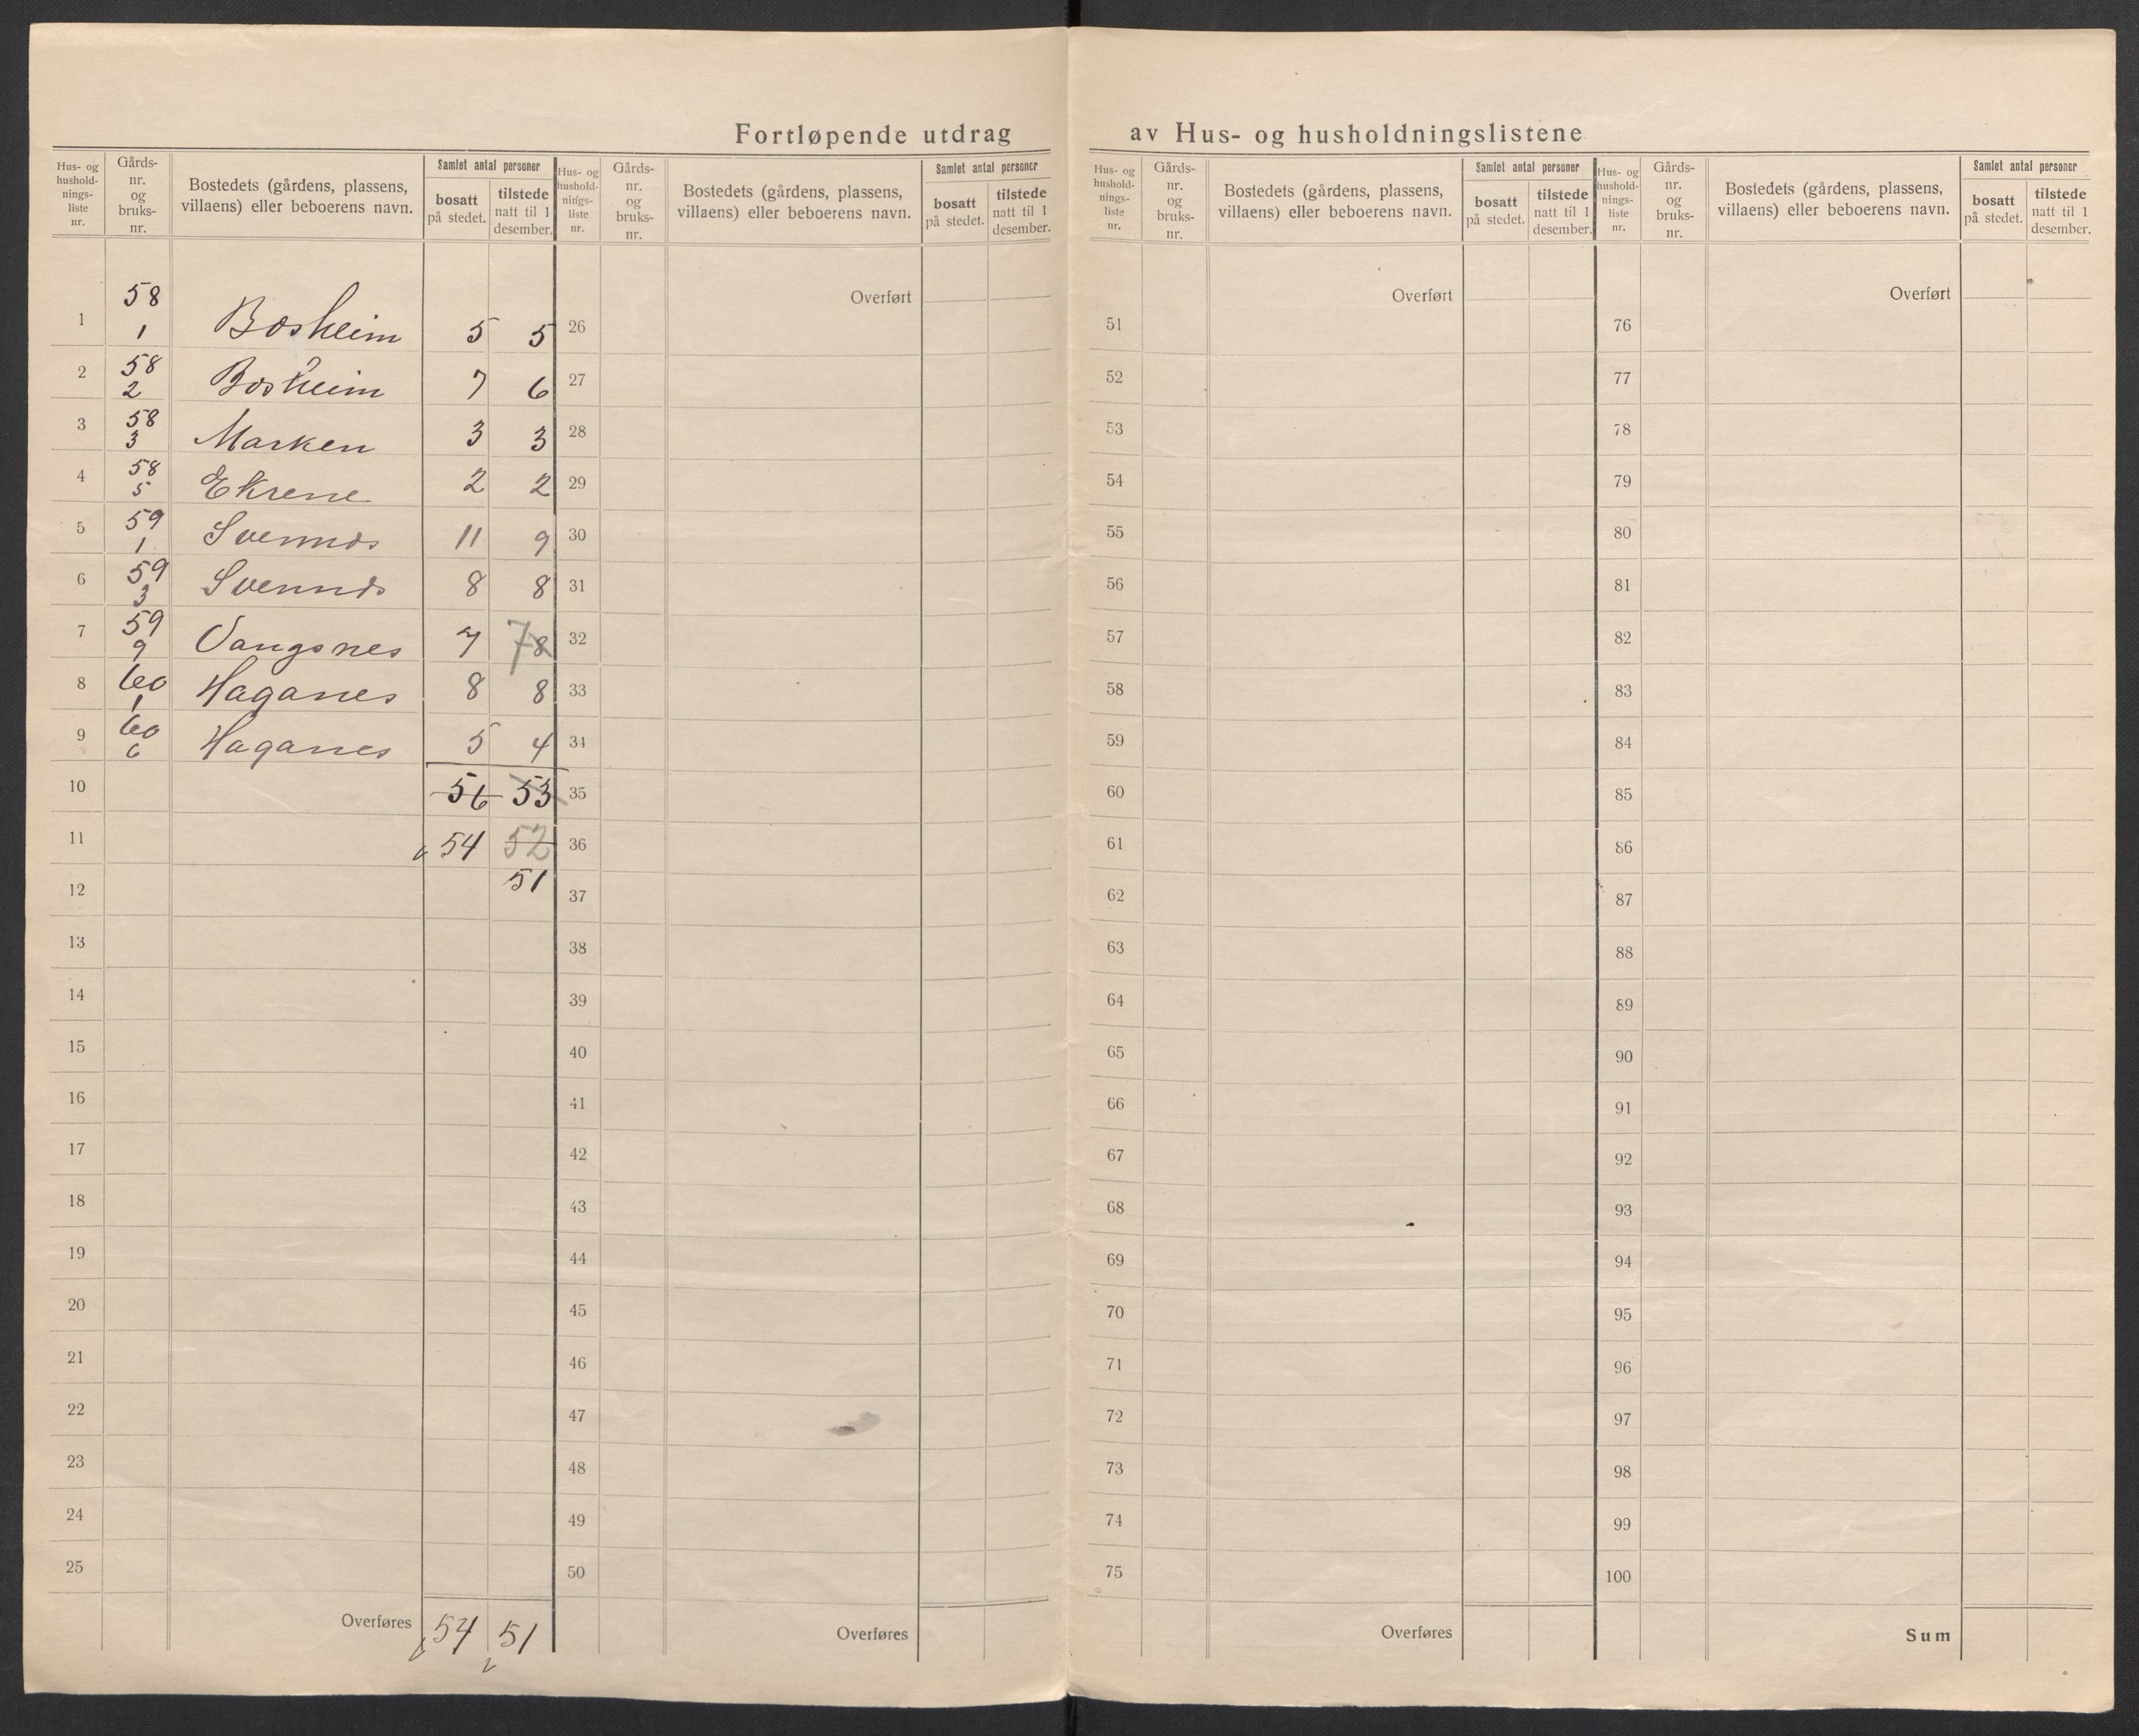 Fortløpende utdrag av Hus- og husholdningslistene
Hus- og hushold- nings- liste nr. Gårds- nr. og bruks- nr. Bostedets (gårdens, plassens, villaens) eller beboerens navn. Samlet antal personer bosatt på stedet. tilstede natt til 1 desember.
1 58 1 Bosheim 5 5
2 58 2 Bosheim 7 6
3 58 3 Marken 3 3
4 58 5 Ekrene 2 2
5 59 1 11 9
6 59 3 8 8
7 59 9 Vangsnes 7 7 8
8 60 1 Haganes 8 8
9 60 6 Haganes 5 4
10 56 53
11 54 52
12 51
13
14
15
16
17
18
19
20
21
22
23
24
25
Overføres 54 51
Hus- og hushold- nings- liste nr. Gårds- nr. og bruks- nr. Bostedets (gårdens, plassens, villaens) eller beboerens navn. Samlet antal personer bosatt på stedet. tilstede natt til 1 desember.
Overført
26
27
28
29
30
31
32
33
34
35
36
37
38
39
40
41
42
43
44
45
46
47
48
49
50
Overføres
Hus- og hushold- nings- liste nr. Gårds- nr. og bruks- nr. Bostedets (gårdens, plassens, villaens) eller beboerens navn. Samlet antal personer bosatt på stedet. tilstede natt til 1 desember.
Overført
51
52
53
54
55
56
57
58
59
60
61
62
63
64
65
66
67
68
69
70
71
72
73
74
75
Overføres
Hus- og hushold- nings- liste nr. Gårds- nr. og bruks- nr. Bostedets (gårdens, plassens, villaens) eller beboerens navn. Samlet antal personer bosatt på stedet. tilstede natt til 1 desember.
Overført
76
77
78
79
80
81
82
83
84
85
86
87
88
89
90
91
92
93
94
95
96
97
98
99
100
Sum